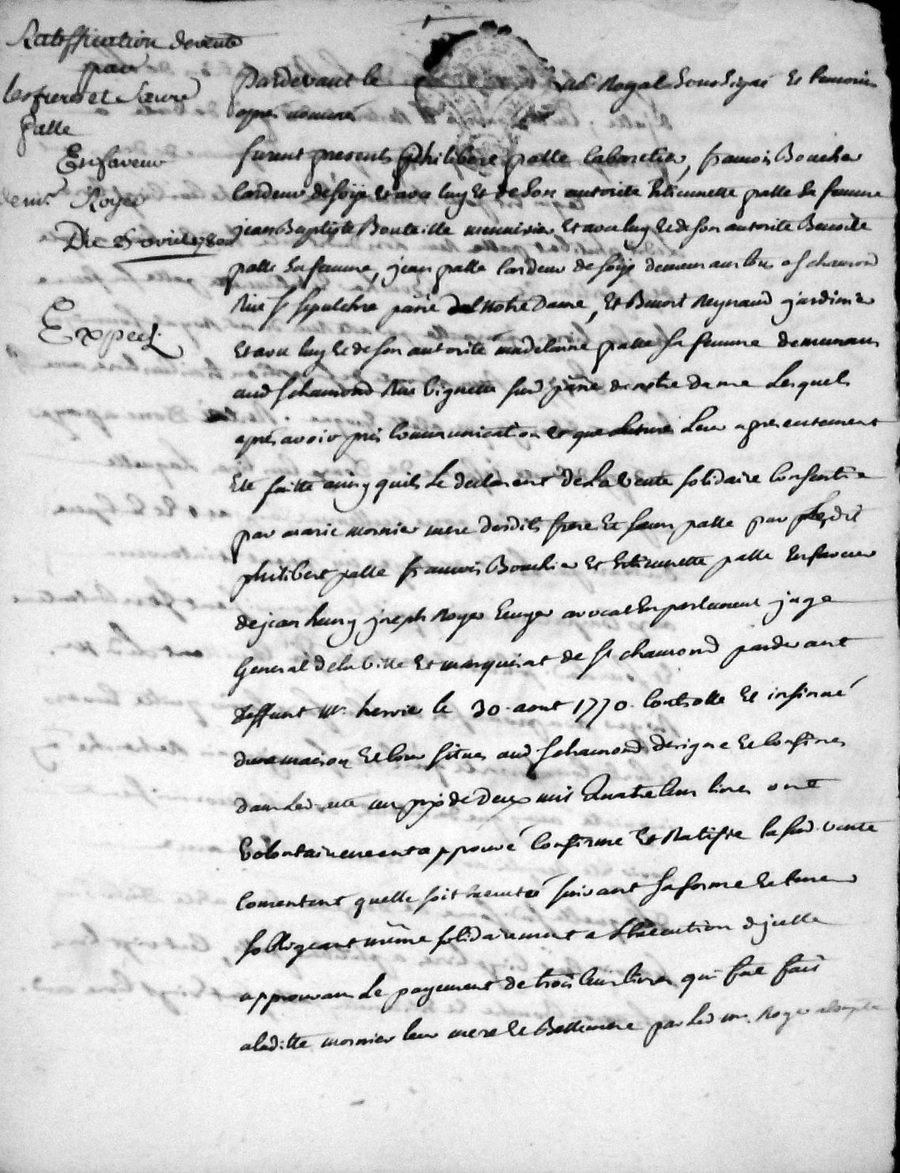 Ratiffication de vente
par
les freres et soeurs
palle
En faveur
de mr. Royer
Du 5 avril 1780
Expeel.
Pardevant le No Royal soussigné et temoins
apres nommés
furent presents philibert palle laboretier, francois Boucher
cardeur de soÿe et avec luy et de son autorité Etiennette palle sa femme
jean Baptiste Bouteille menuisier et avec luy et de son autorité Benoite
palle sa femme, jean palle cardeur de soÿe demeurans tous a st chamond
Rue st sepulchre parsse de Notre Dame, et Benoit Reynaud jardinier
et avec luy et de son autorité madelaine palle sa femme demeurans
aud st chamond Rue vignette sud. parsse de notre dame Lesquels
apres avoir pris communication et que lecture Leur a presentement
Eté faitte ainsy quils Le declarent de La vente solidaire consentie
par marie mornier mere desdits frere et soeurs palle par lesdits
philibert palle francois Boucher et Etiennette palle En faveur
de jean henry joseph Royer Ecuyer avocat En parlement juge
General de la ville et marquisat de st chamond pardevant
deffunt me. hervier le 30. aout 1770. controllé et insinué
dune maison et cour situés aud st chamond designé et confinés
dans led. acte au prix de Deux mil quatre cens livres ont
volontairement approuvé confirmé et Ratiffié lasud. vente
consentent quelle soit executé suivant sa forme et teneur
sobligeant même solidairement a Lexecution dycelle
approuvans Le payement de trois cens livres qui fut fait
a laditte mornier leur mere et Bellemere par Led. mr. Royer